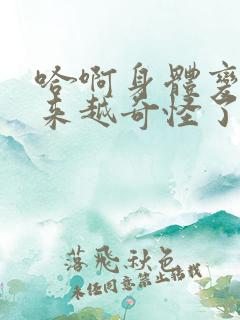 哈啊身體變
来越奇怪了
落飛秋色
未经同意禁止转载